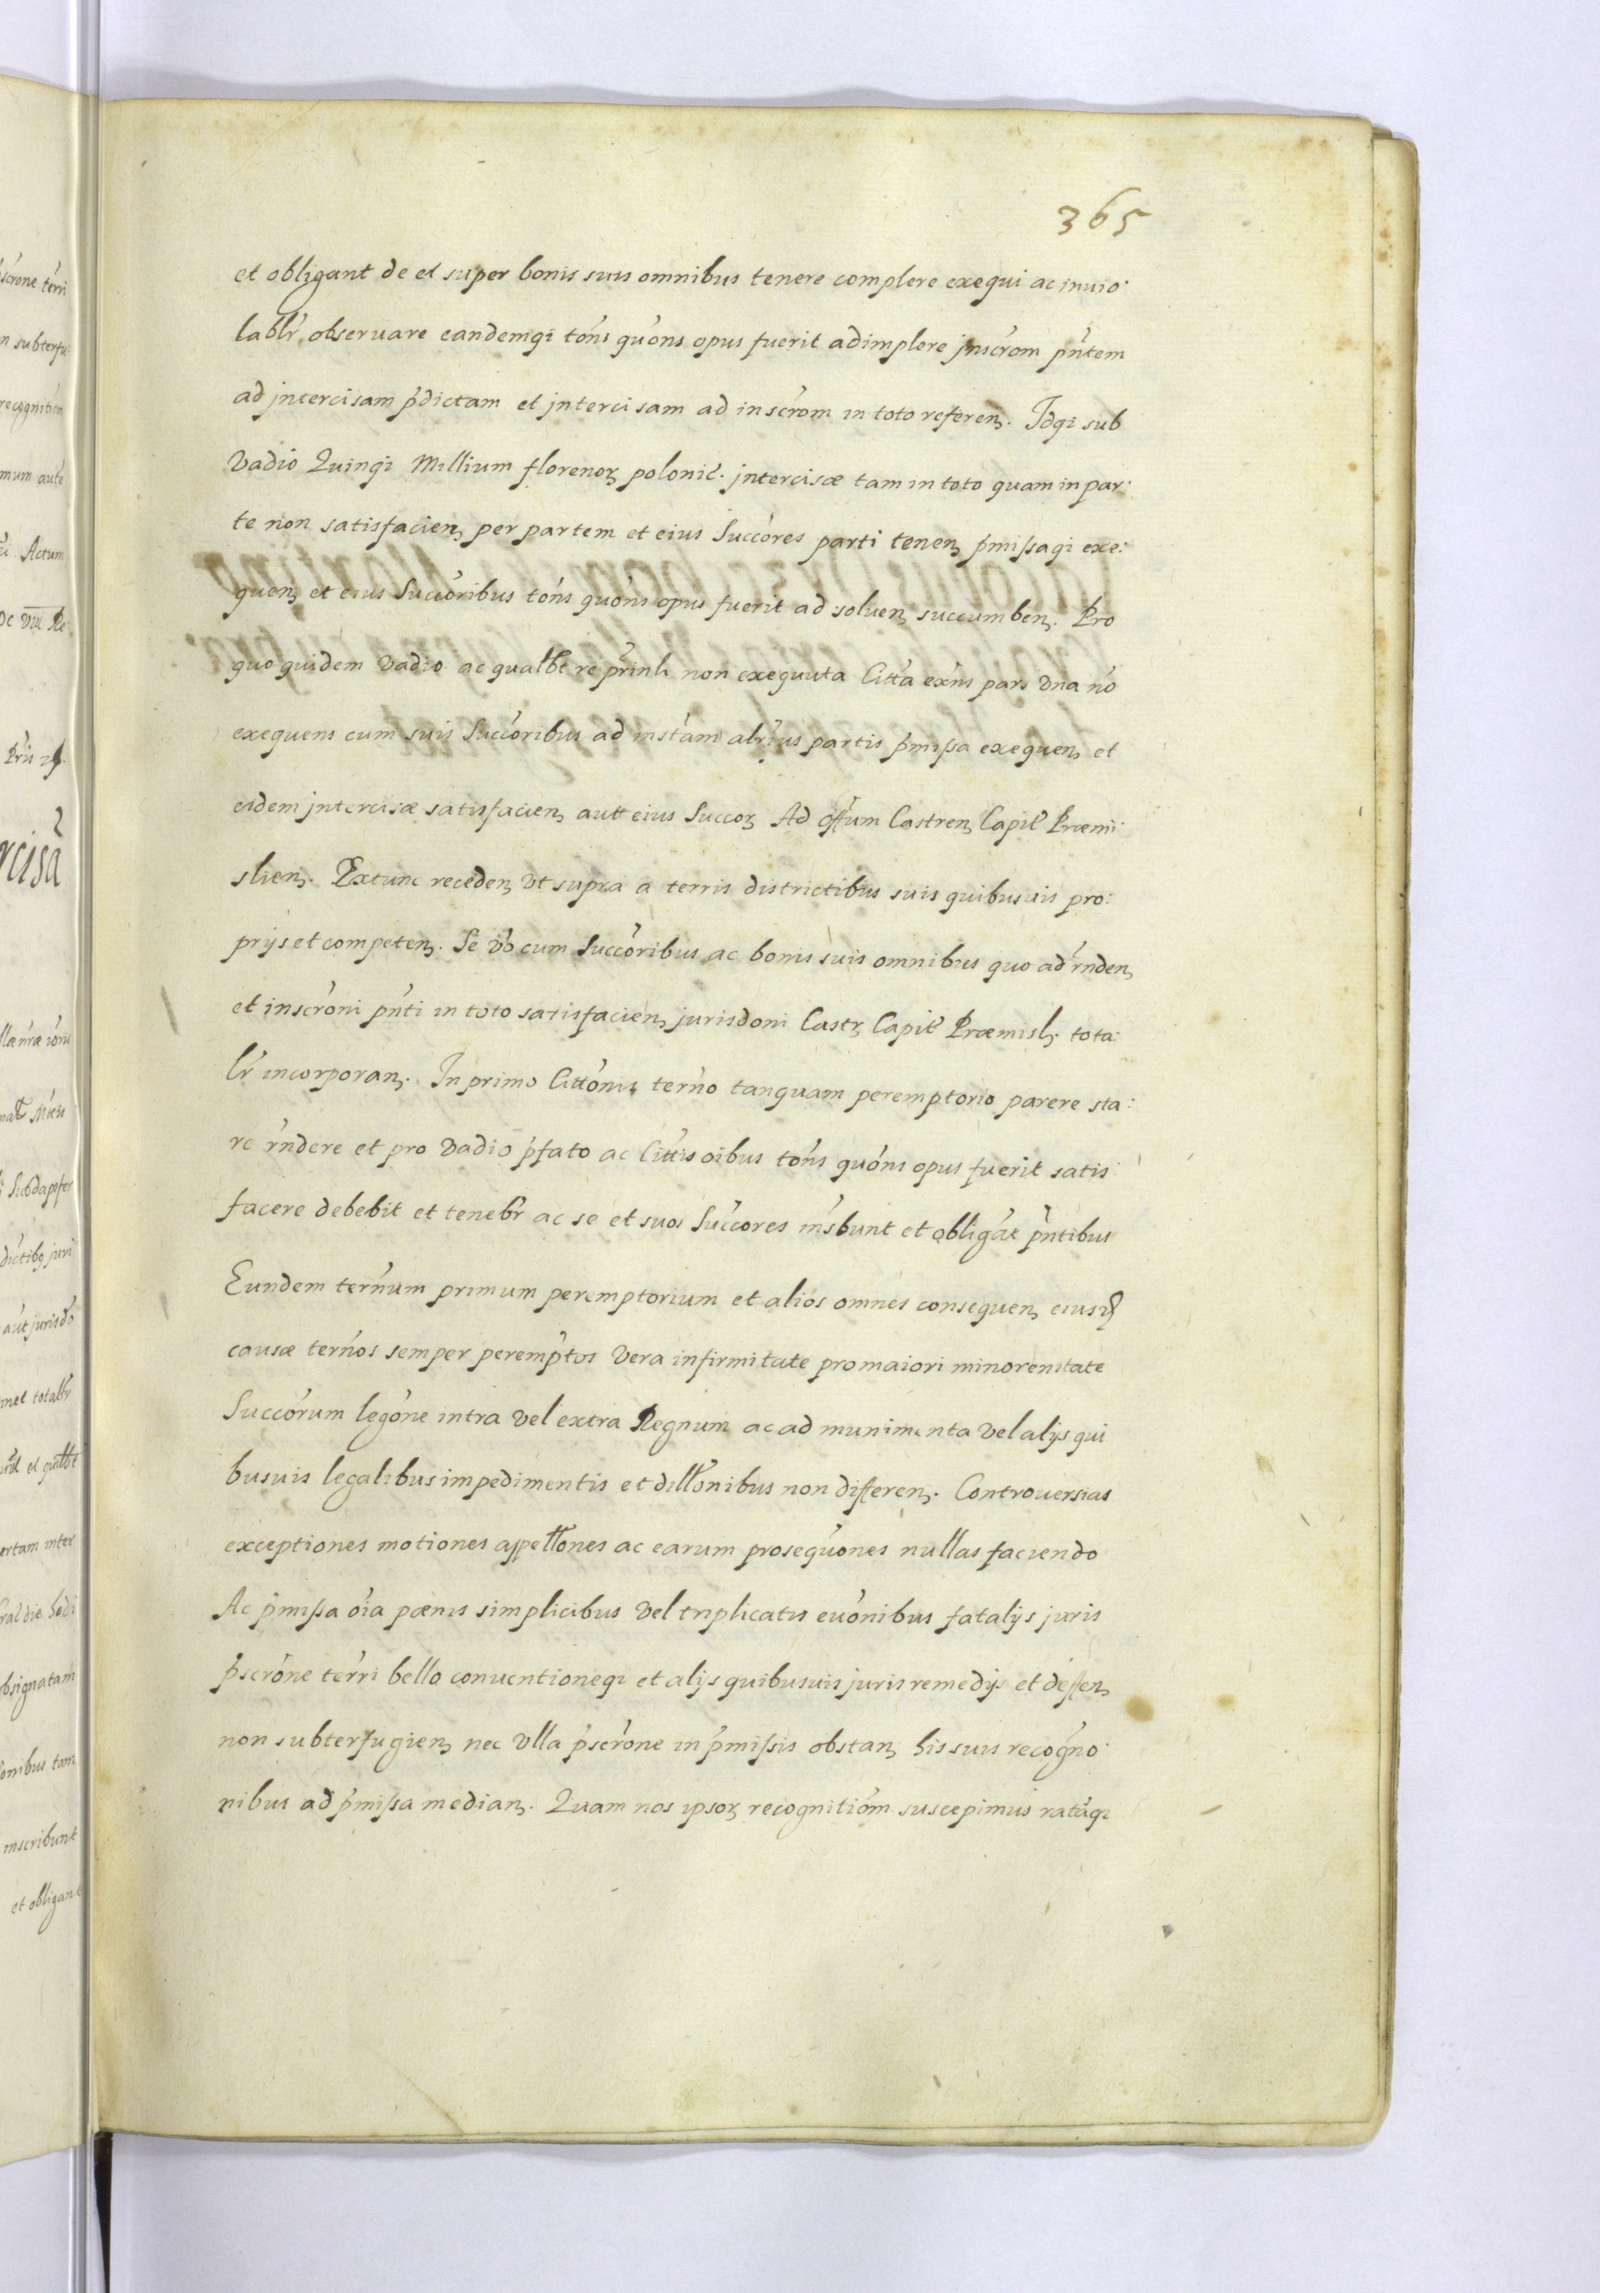 365
et obligant de et super bonis suis omnibus tenere complere exequi ac inuio:
lablr̃ obseruare eandemqꝫ tón̄s quón̄s opus fuerit adimplere jnscrõm pñtem
ad jntercisam p̃dictam et jntercisam ad inscrõm in toto referenꝫ. Idqꝫ sub
Vadio Quinqꝫ Millium florenoꝝ polonic̃. jntercisæ tam in toto quam in par:
te non satisfacienꝫ per partem et eius Succ̃ores parti tenenꝫ p̃missaqꝫ exe:
quenꝫ et eius Succ̃oribus tón̄s quón̄s opus fuerit ad soluenꝫ succumbenꝫ. Pro
quo quidem Vadio ac qualbt re p̃rinli non exequuta Citt̃a exñs pars Vna nõ
exequens cum suis Succ̃oribus ad instãm alr̃ius partis p̃missa exequenꝫ et
eidem jntercisæ satisfacienꝫ autt eius Succoꝝ Ad off̃um Castrenꝫ Capit̃ Præmi:
slienꝫ. Extunc recedenꝫ Vt supra a terris districtibus suis quibusuis pro:
prijs et competenꝫ. Se Võ cum Succ̃oribus ac bonis suis omnibus quo ad r̃ndenꝫ
et inscrõni pñti in toto satisfacienꝫ jurisdõni Castrꝫ Capit̃ Præmislꝫ. tota:
lr̃ incorporanꝫ. In primo Cittõnis terño tanquam peremptorio parere sta:
re r̃ndere et pro Vadio p̃fato ac Citt̃is oĩbus tón̄s quón̄s opus fuerit satis:
facere debebit et tenebr̃ ac se et suos Succ̃ores iñsbunt et obligãt p̃ntibus
Eundem terñum primum peremptorium et alios omnes consequenꝫ eiusd̃
causæ terños semper peremp̃tos Vera infirmitate pro maiori minorenitate
Succ̃orum legõne intra Vel extra Regnum ac ad munimenta Vel alijs qui
busuis legalibus impedimentis et dill̃onibus non differenꝫ. Controuersias
exceptiones motiones appell̃ones ac earum prosequõnes nullas faciendo
Ac p̃missa oĩa pænis simplicibus Vel triplicatis euõnibus fatalijs juris
p̃scrõne ter̃ri bello conuentioneqꝫ et alijs quibusuis juris remedijs et deffenꝫ
non subterfugienꝫ nec Vlla p̃scrõne in p̃missis obstanꝫ his suis recogno:
nibus ad p̃missa medianꝫ. Quam nos ipsoꝝ recognitiõm suscepimus ratãqꝫ